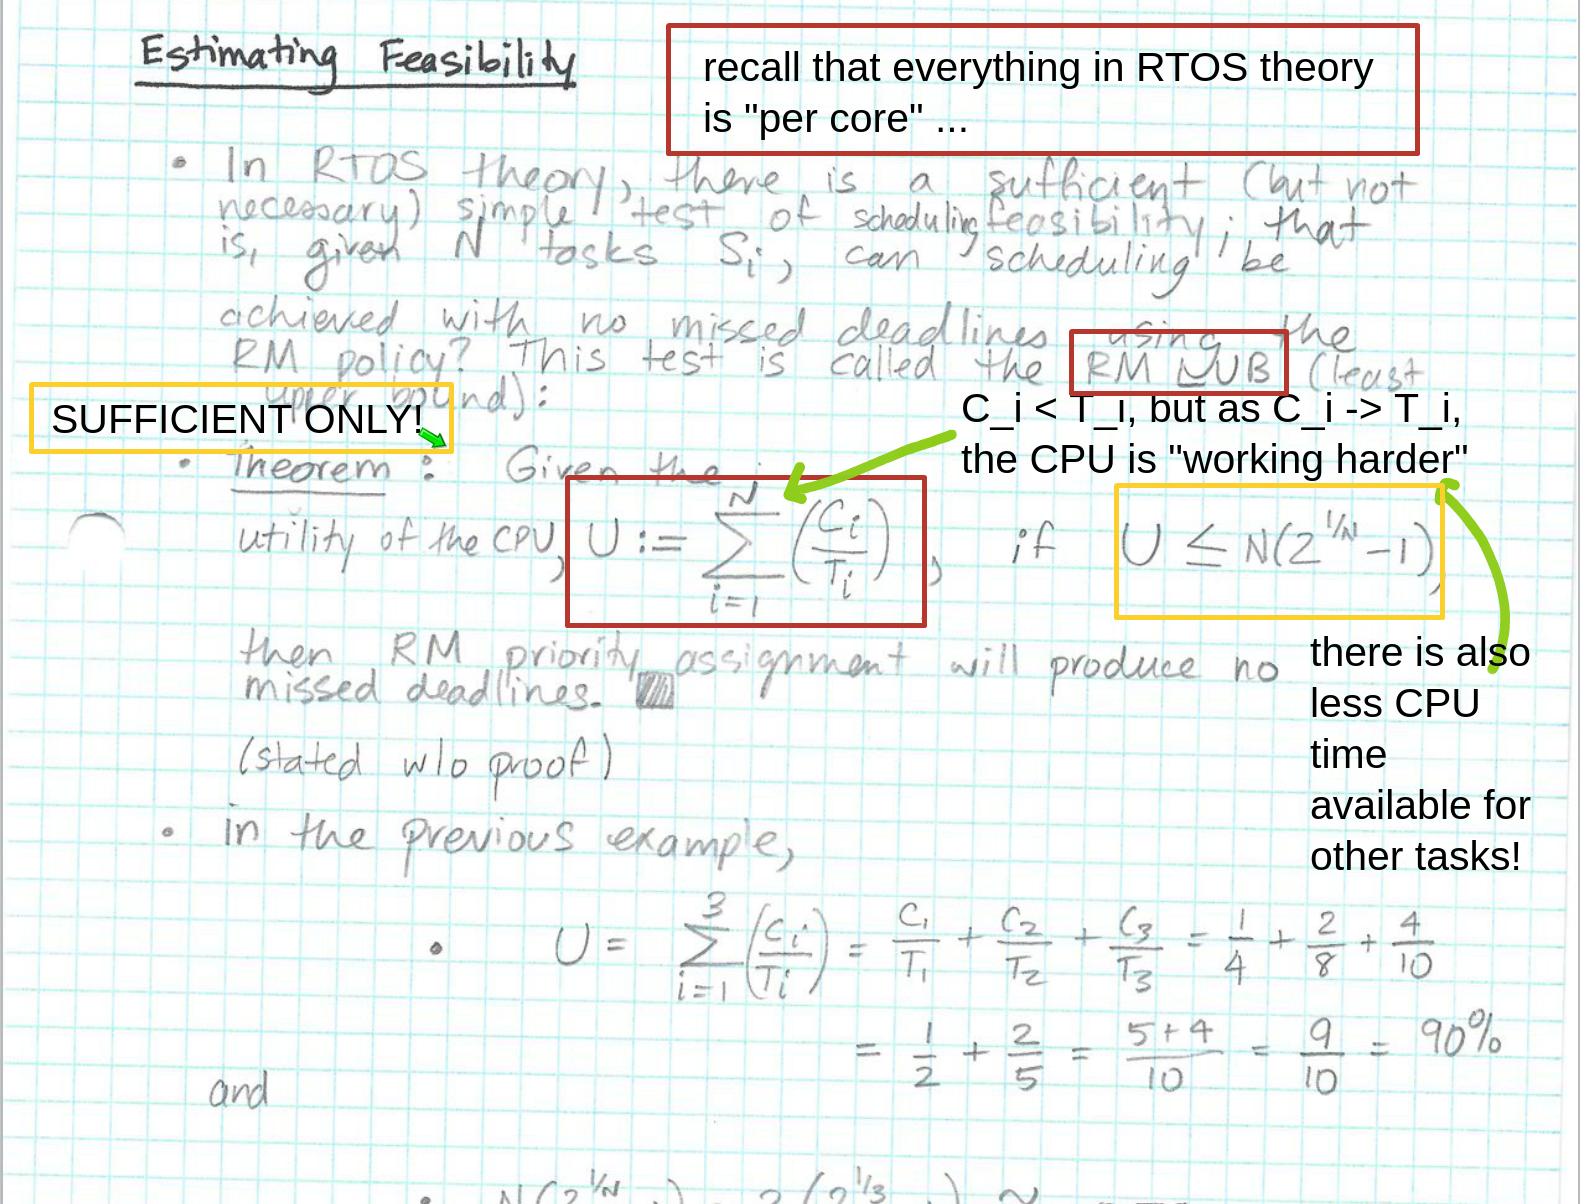 Estimating Feasibility
recall that everything in RTOS theory
is "per core" ...
• In RTOS theory, there is a sufficient (but not
necessary) simple test of scheduling feasibility; that
is, given N tasks Si, can scheduling be
achieved with no missed deadlines using the
RM policy? This test is called the RM LUB (least
upper bound):
SUFFICIENT ONLY!
C_i < T_i, but as C_i -> T_i,
the CPU is "working harder"
• Theorem: Given the
utility of the CPU, U := \sum_{i=1}^{N} (C_i/T_i), if U ≤ N(2^{1/N} - 1),
then RM priority assignment will produce no
missed deadlines.
there is also
less CPU
time
available for
other tasks!
(stated w/o proof)
• in the previous example,
• U = \sum_{i=1}^{3} (C_i/T_i) = C_1/T_1 + C_2/T_2 + C_3/T_3 = 1/4 + 2/8 + 4/10
= 1/2 + 2/5 = 5+4/10 = 9/10 = 90%
and